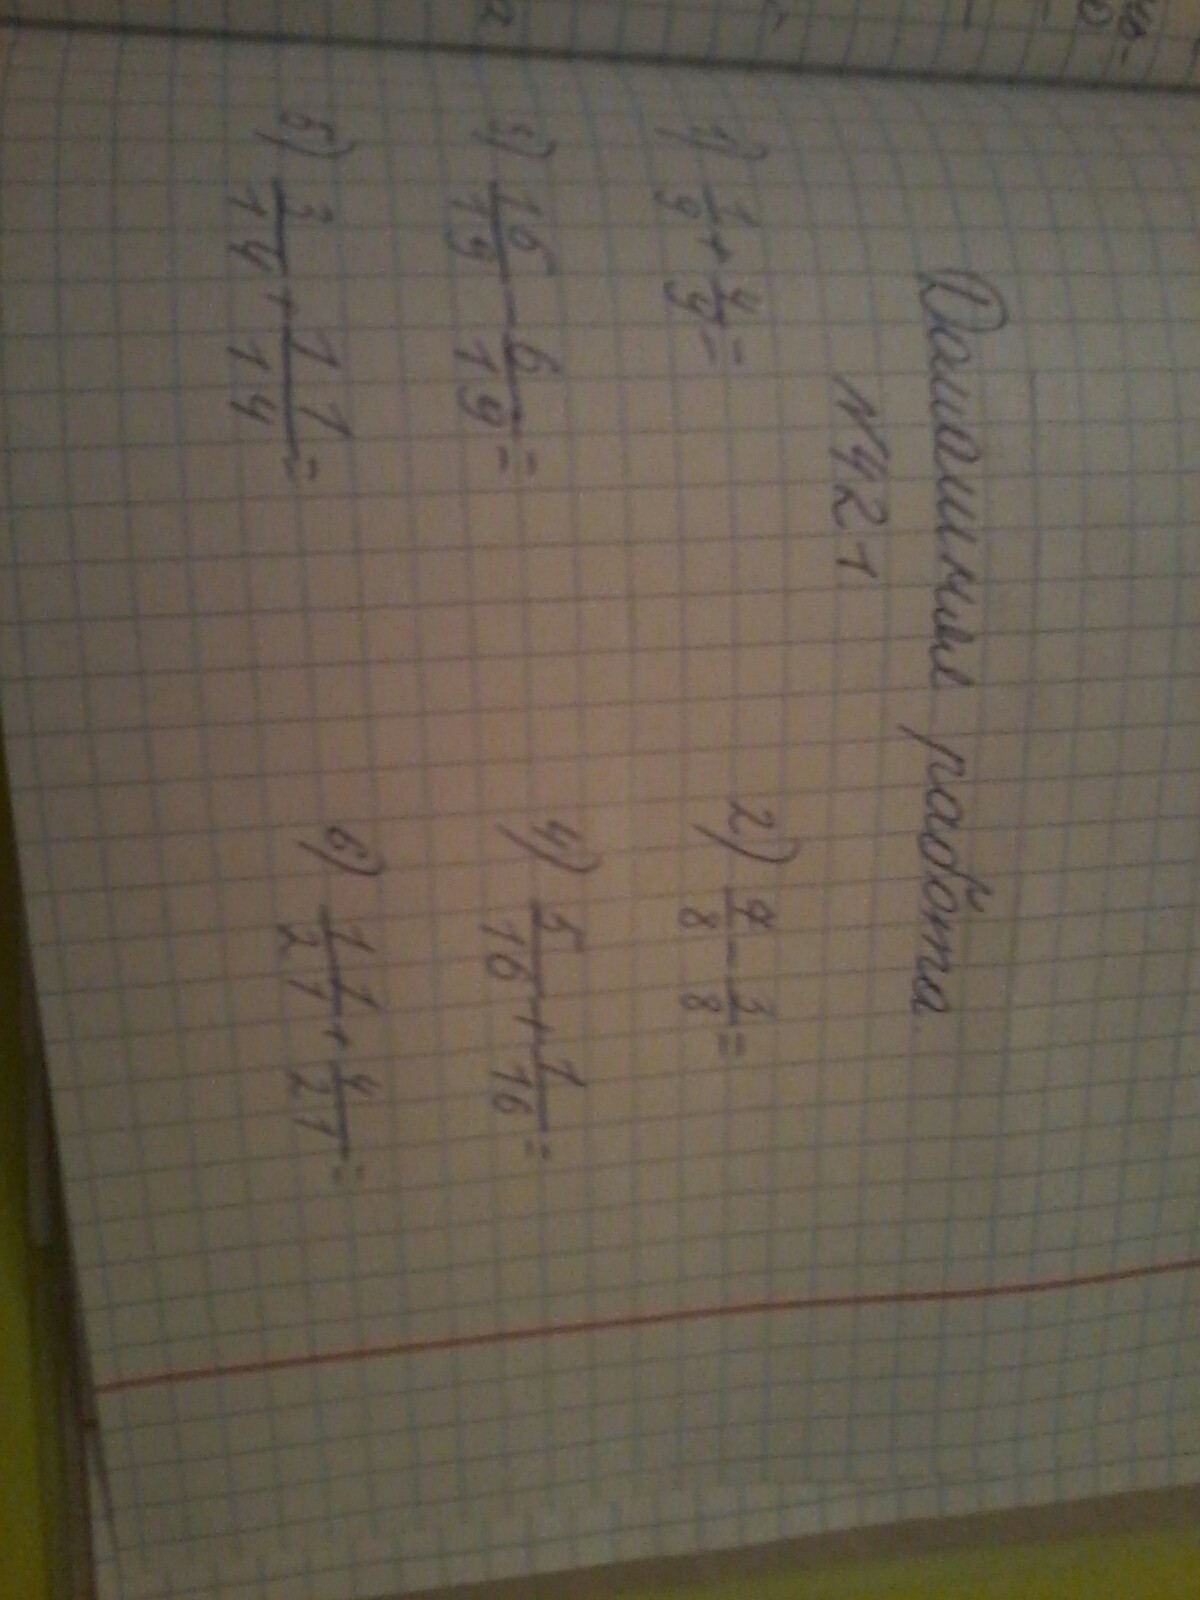 Домашняя работа.
№421
1) 1/9 + 4/9 = 2) 7/8 - 3/8 =
3) 16/19 - 6/19 = 4) 5/16 + 1/16 =
5) 3/14 + 11/14 = 6) 11/21 + 4/21 =